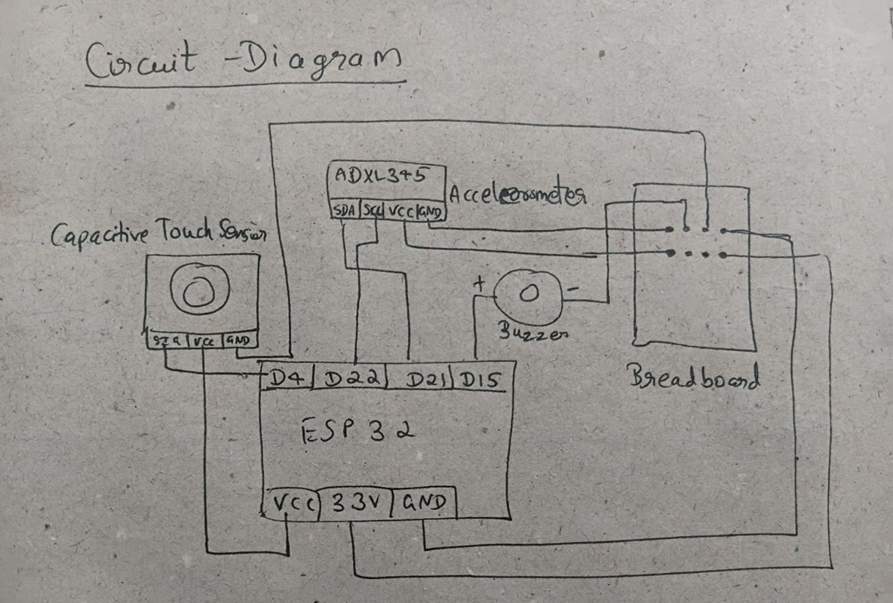 Circuit - Diagram
ADXL345
Accelerometer
SDA SCL VCC GND
Capacitive Touch Sensor
SIG VCC GND
+ -
Buzzer
Breadboard
D4 D22 D21 D15
ESP 32
VCC 3.3V GND